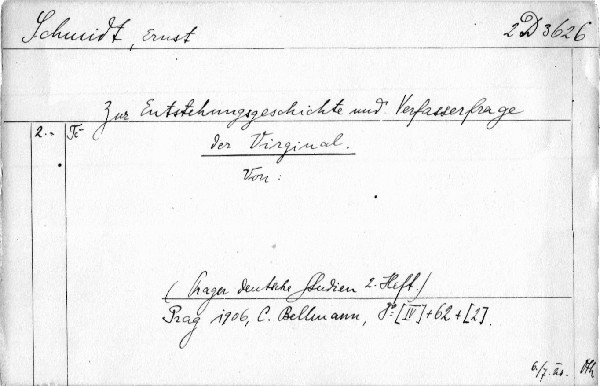 Schmidt, Ernst
2 D 3626
Zur Entstehungsgeschichte und Verfasserfrage
2.-
der Virginal.
Von:
(Prager deutsche Studien 2. Heft.)
Prag 1906, C. Bellmann, [IV]+62+[2].